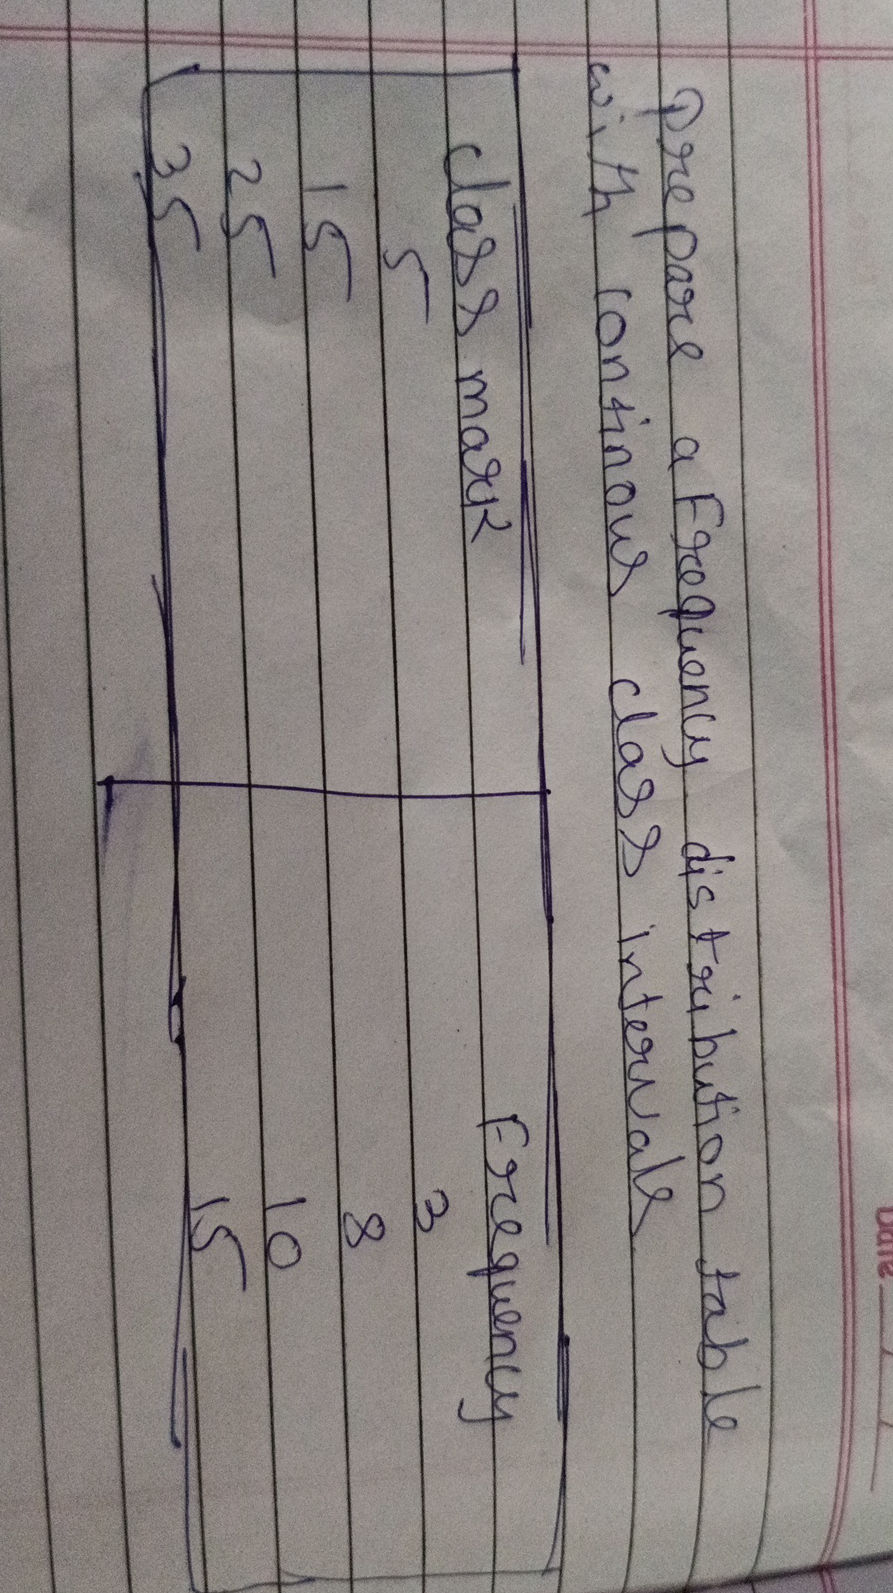 Date
Prepare a Frequency distribution table
with continous class intervals
class mark Frequency
5 3
15 8
25 10
35 15